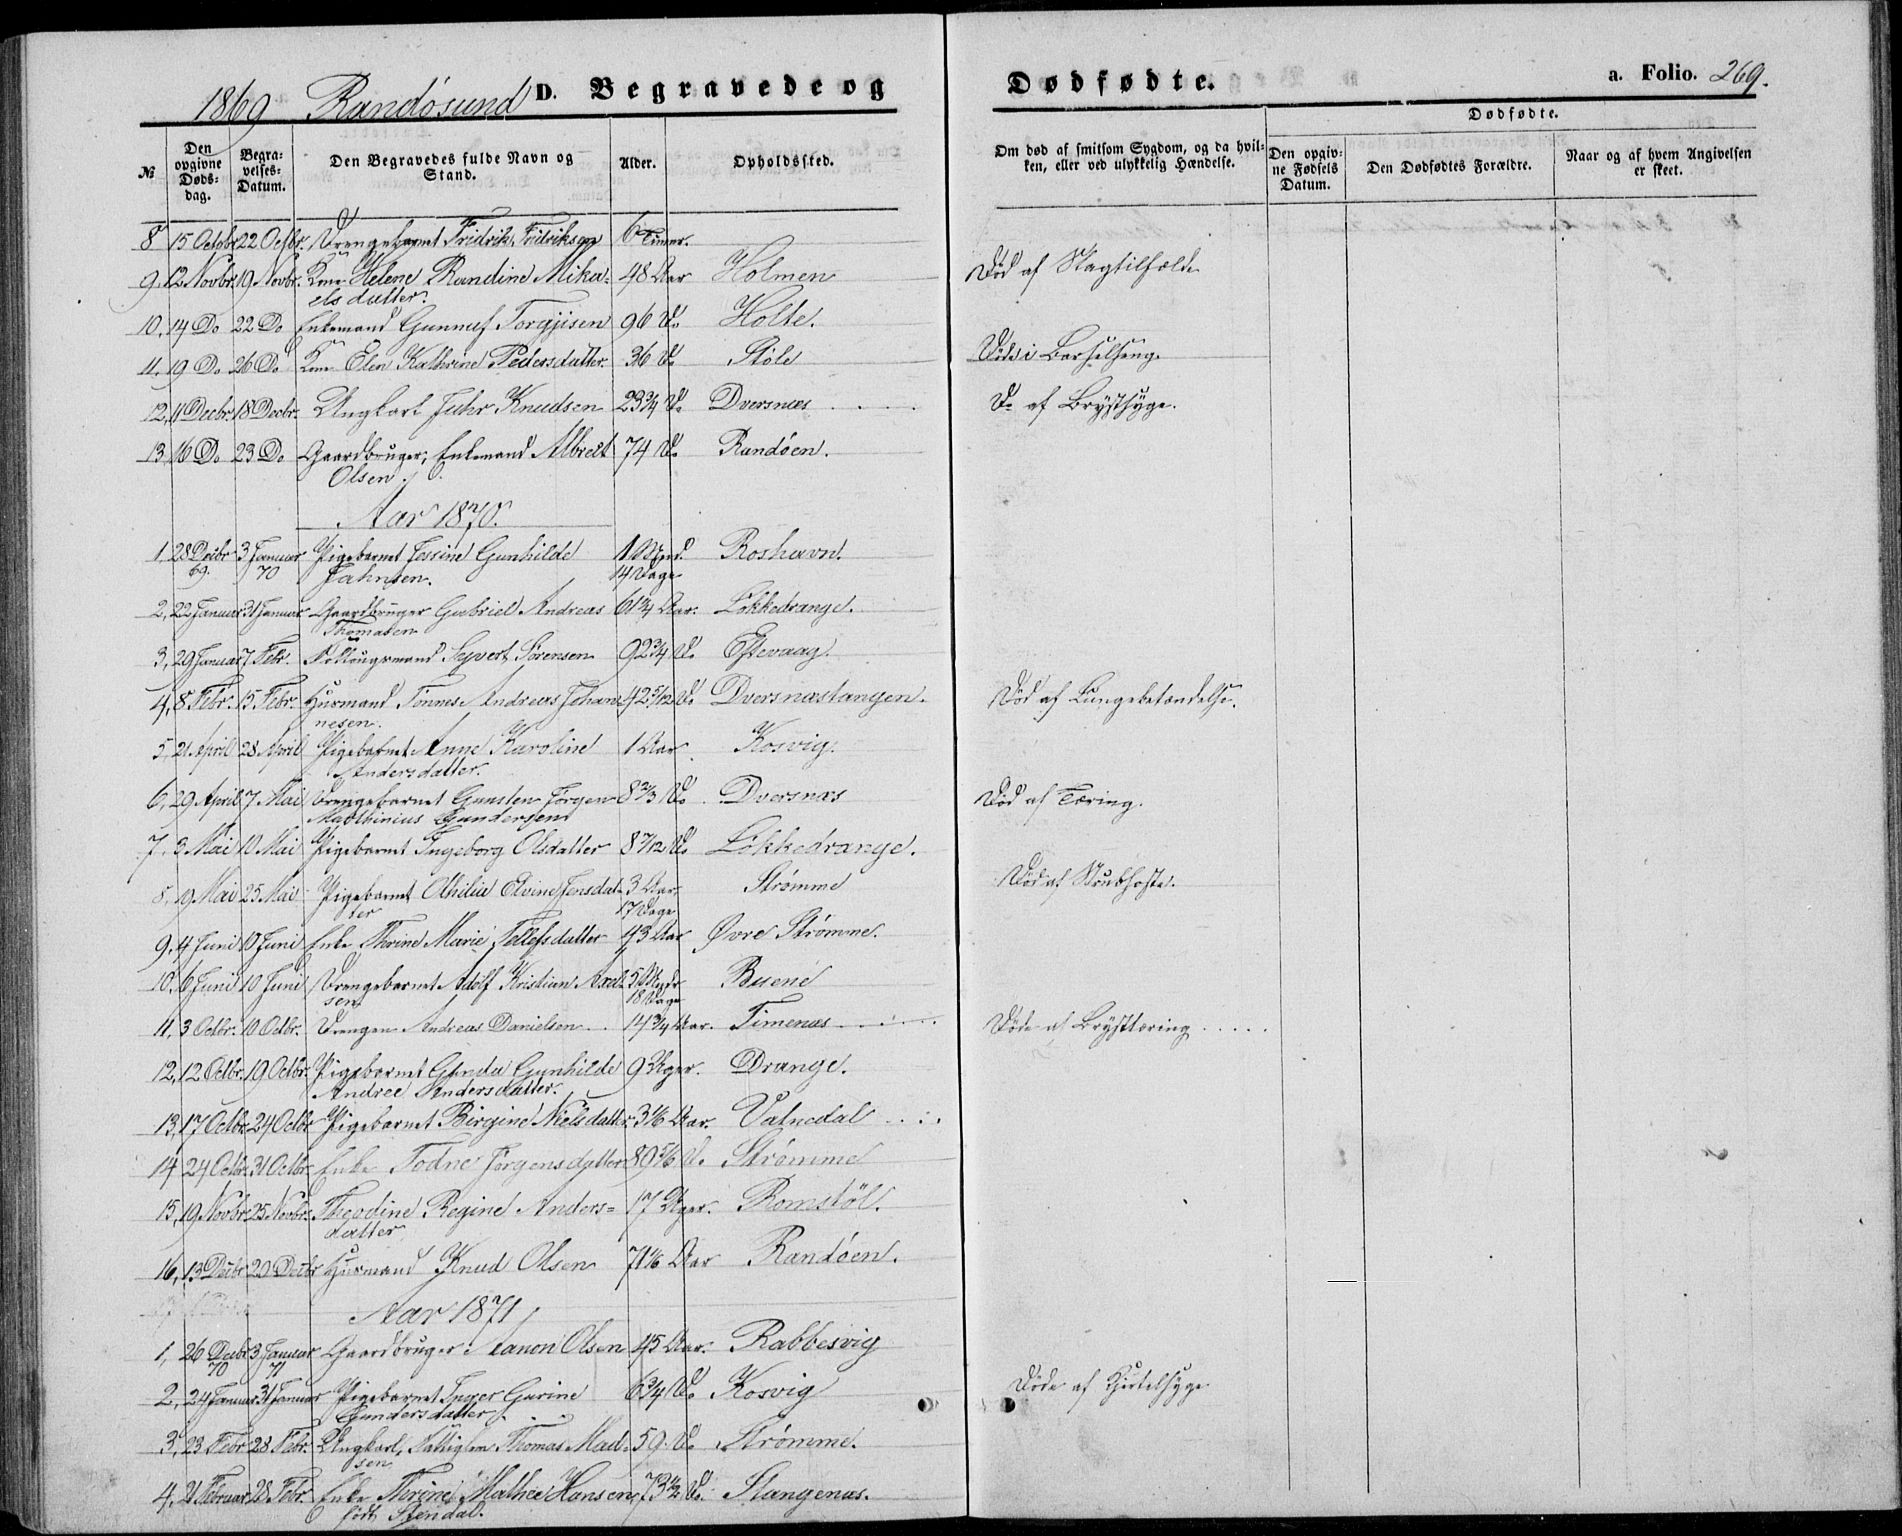 1869 Randøsund D. Begravede og
Dødfødte.
a. Folio. 269.
№
Den opgivne Døds-dag.
Begra-velses-Datum.
Den Begravedes fulde Navn og Stand.
Alder.
Opholdssted.
Om død af smitsom Sygdom, og da hvil-ken, eller ved ulykkelig Hændelse.
Dødfødte.
Den opgiv-ne Fødsels Datum.
Den Dødfødtes Forældre.
Naar og af hvem Angivelsen er skeet.
8 15 Octobr 22 Octbr. Drengebarnet Fridrik Fidriksen 6 Timer.
9, 12 Novbr. 19 Novbr. Kone Helene Randine Mika- 48 Aar Holmen Død af Slagtilfælde
elsdatter.
10, 14 Do 22 Do Enkemand Gunnuf Torgjisen 96 Do Holte.
11, 19 Do 26 Do Kone Elen Kathrine Pedersdatter. 36 Do Støle Døde i Barselseng.
12, 11 Decbr. 18 Decbr. Ungkarl Juhr Knudsen 23 3/4 Do Dversnæs Do af Brystsyge.
13, 16 Do 23 Do Gaardbruger, Enkemand Albrecht 74 Do Randøen.
Olsen.
Aar 1870.
1, 28 Decbr 3 Januar Pigebarnet Jessine Gunhilde 1 Mnd. Roshavn.
69. 70 Jahnsen. 14 Dage
2, 22 Januar 31 Januar Gaardbruger Gabriel Andreas 61 3/4 Aar. Løkkedrange.
Thomasen
3, 29 Januar 7 Febr. Follougsmand Syvert Sørensen 92 3/4 Do Eftevaag.
4, 8 Febr. 15 Febr. Husmand Tønnes Andreas Johan- 42 5/12 Do Dversnæstangen. Død af Lungebetændelse.
nesen.
5, 21 April 28 April Pigebarnet Anne Karoline 1 Aar Kosvig.
Andersdatter.
6, 29 April 7 Mai Drengebarnet Gunsten Jørgen 8 2/3 Do Dversnæs Død af Tæring.
Mathinius Gundersen
7, 3 Mai 10 Mai Pigebarnet Ingeborg Olsdatter 8 7/12 Do Løkkedrange.
8, 19 Mai 25 Mai Pigebarnet Othilia Elvine Jensdat- 3 Aar. Strømme Død af Strubhoste.
ter 17 Dage
9, 4 Juni 10 Juni Enke Thrine Marie Tellefsdatter 43 Aar Øvre Strømme.
10, 6 Juni 10 Juni Drengebarnet Adolf Kristian Axel- 5 Mndr. Buene
sen 18 Dage
11, 3 Octbr. 10 Octbr. Drengen Andreas Danielsen 14 3/4 Aar. Timenæs Døde af Brysttæring
12, 12 Octbr. 19 Octbr. Pigebarnet Gunda Gunhilde 9 Uger. Drange.
Andree Andersdatter.
13, 17 Octbr. 24 Octbr Pigebarnet Birgine Nielsdatter. 3 1/6 Aar. Vatnedal
14 24 Octbr. 31 Octbr. Enke Todne Jørgensdatter 89 5/6 Do Strømme
15, 19 Novbr. 25 Novbr. Theodine Regine Anders- 17 Uger. Romstøl.
datter
16, 13 Decbr 20 Decbr Husmand Knud Olsen 71 1/6 Aar Randøen.
Aar 1871,
1, 26 Decbr 3 Januar Gaardbruger Aanon Olsen 45 Aar. Rabbesvig
70 71
2, 24 Januar 31 Januar Pigebarnet Inger Gurine 6 3/4 Do Kosvig Døde af Kjertelsyge
Gundersdatter.
3, 23 Febr 28 Febr. Ungkarl, Fattiglem Thomas Mad- 59 Do Strømme.
sen
4, 21 Februar 28 Febr. Enke Therine Mathea Hansen, 73 1/2 Do. Stangenæs.
født Stendal.